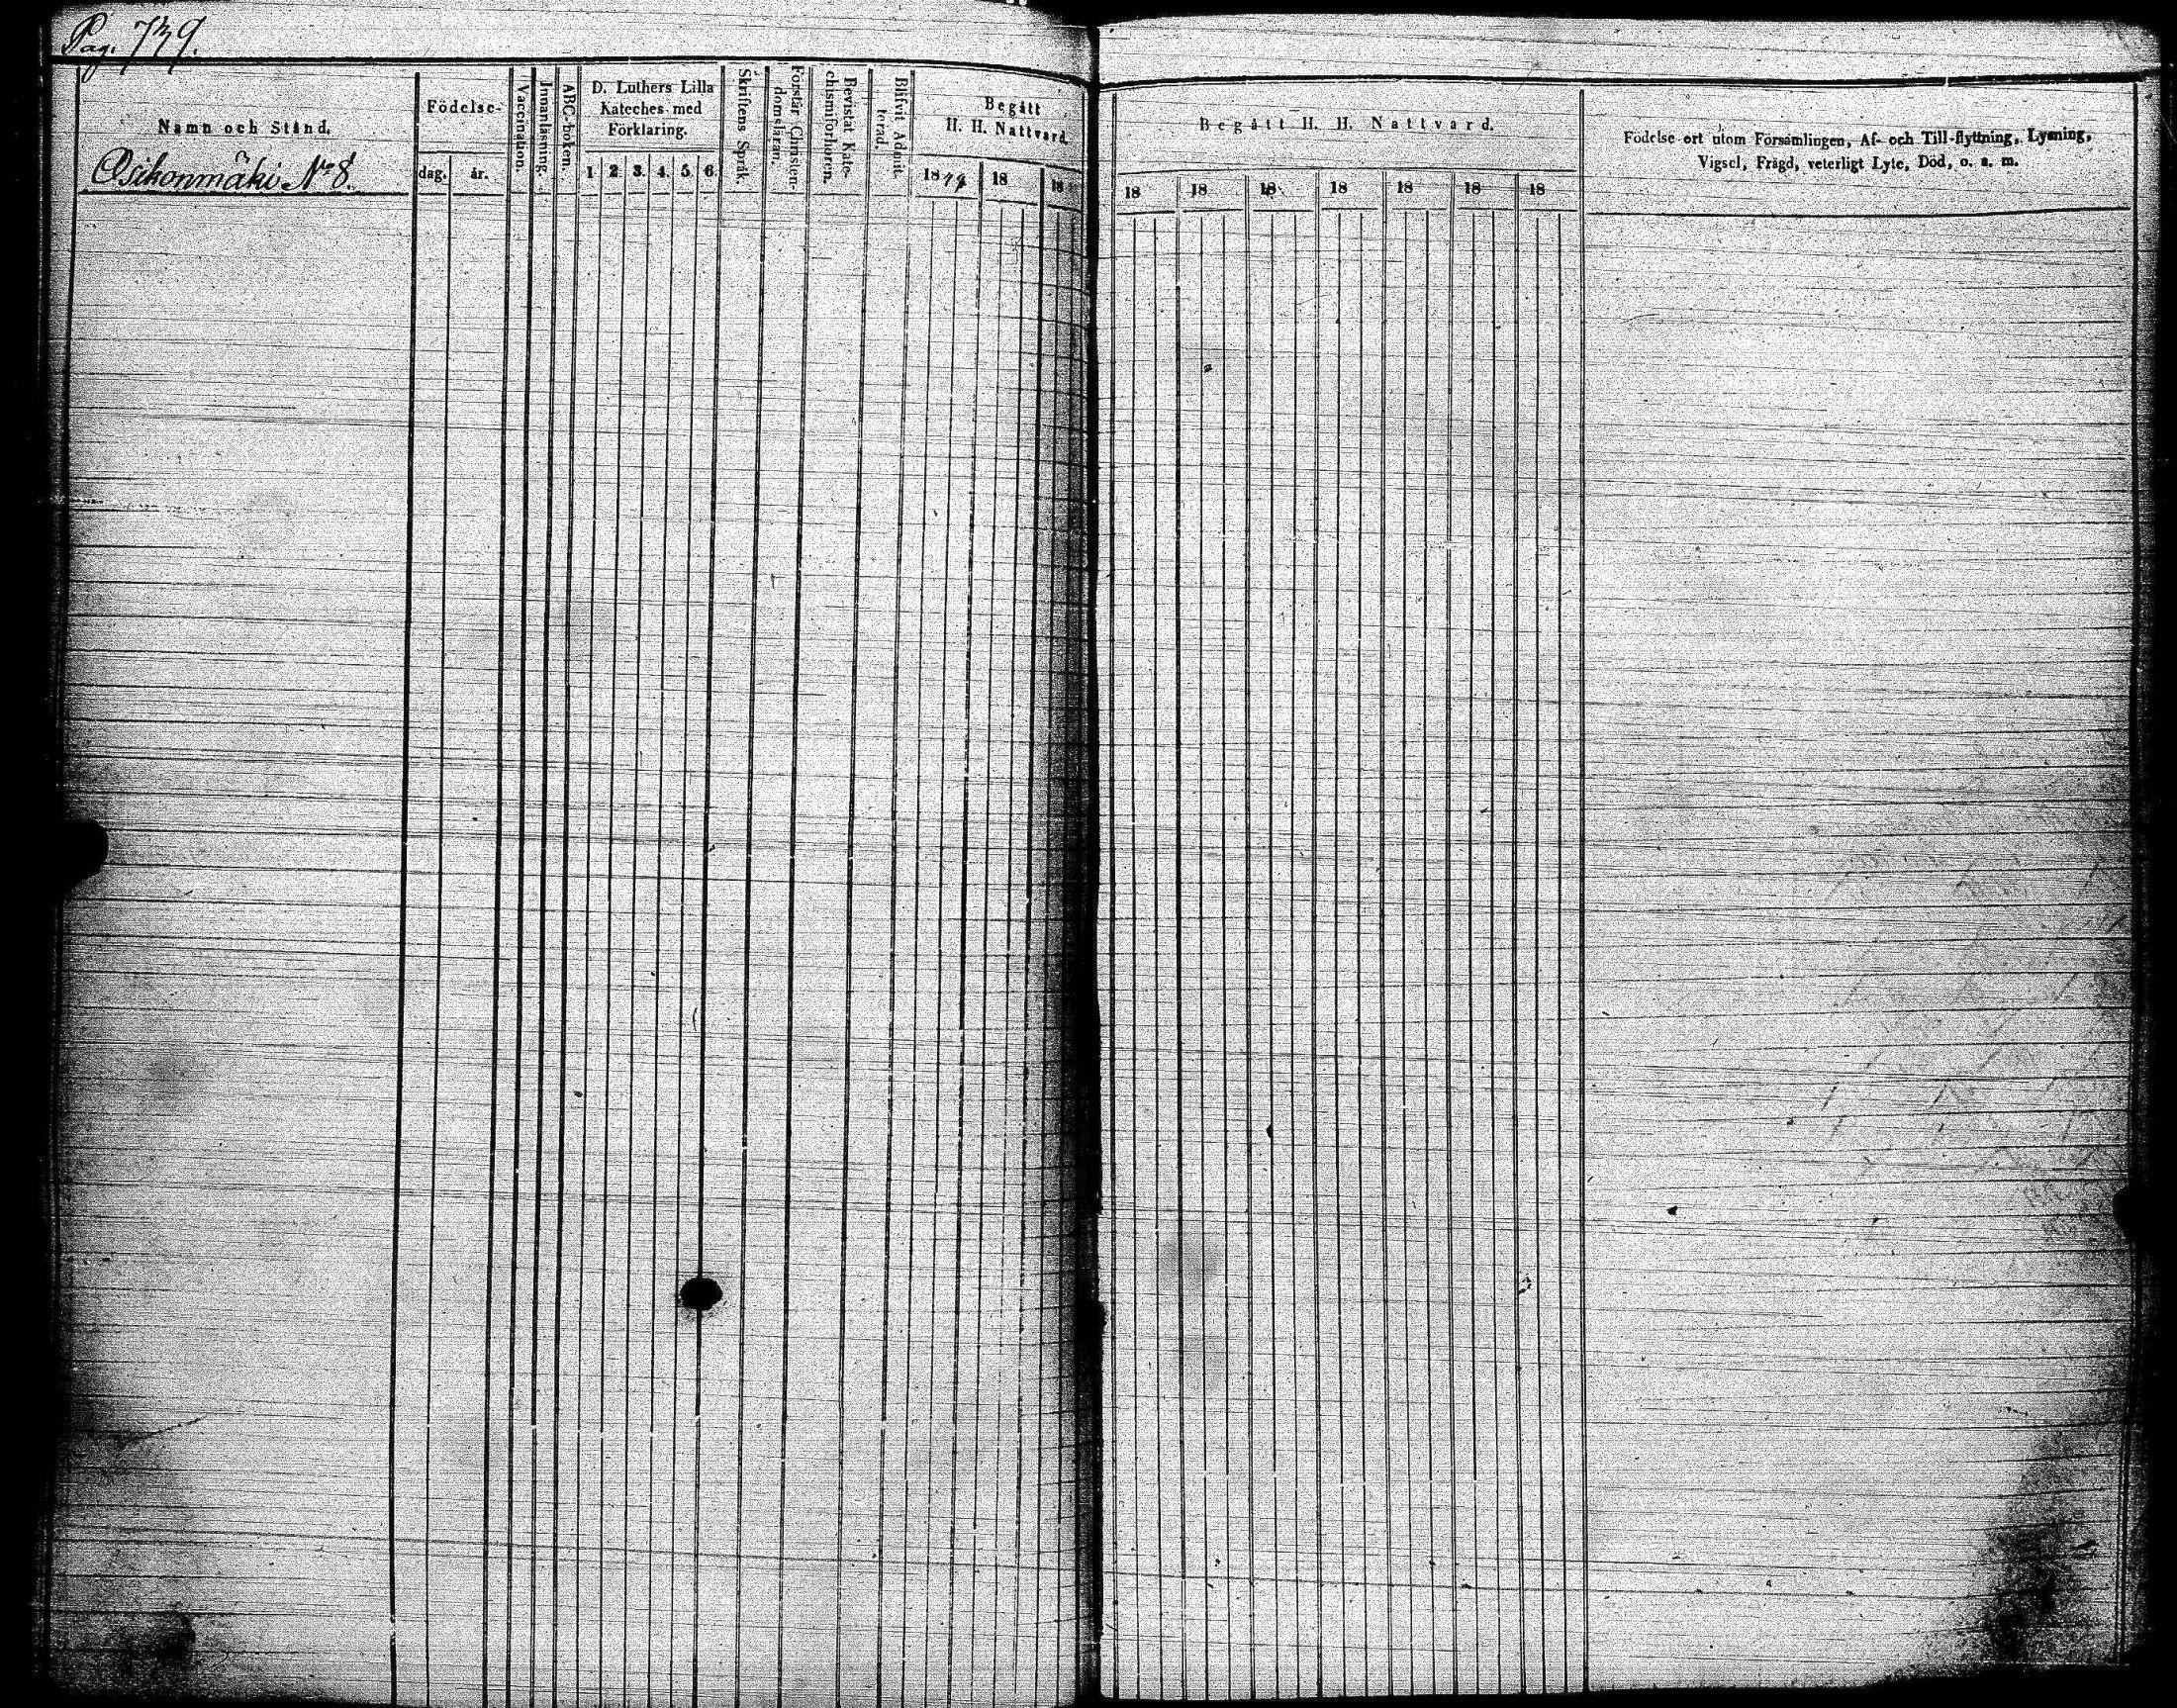 Pag. 739.
Namn och Stånd.
Osikonmäki No 8.
Födelse-
dag.
år.
Vaccination.
Innanläsning.
ABC-boken.
D. Luthers Lilla
Kateches med
Förklaring.
1 2 3. 4. 5. 6.
Skriftens Språk.
Förstår Christen-
domsläran.
Bevistat Kate-
chismiförhören.
Blifvit Admit-
terad.
Begått
H. H. Nattvard.
18 18 18
Begått H. H. Nattvard.
18 18 18 18 18 18 18
Födelse-ort utom Församlingen, Af- och Till-flyttning, Lysning,
Vigsel, Frägd, veterligt Lyte, Död, o. s. m.